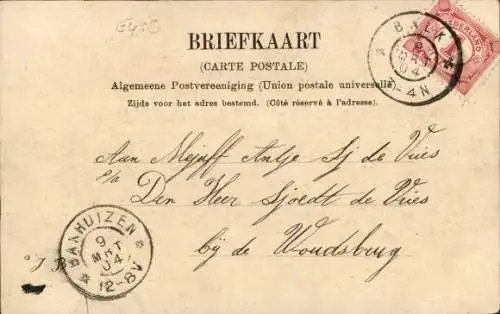 BRIEFKAART
(CARTE POSTALE)
Algemeene Postvereeniging (Union postale universelle).
Zijde voor het adres bestemd. (Côté réservé à l'adresse).
BALK
MRT
04
-4N
NEDERLAND
Aan Mejuff Antje Sj de Vries
p/a
Den Heer Sjoedt de Vries
bij de Woudsbrug
BAKHUIZEN
9
MRT
04
12-8V